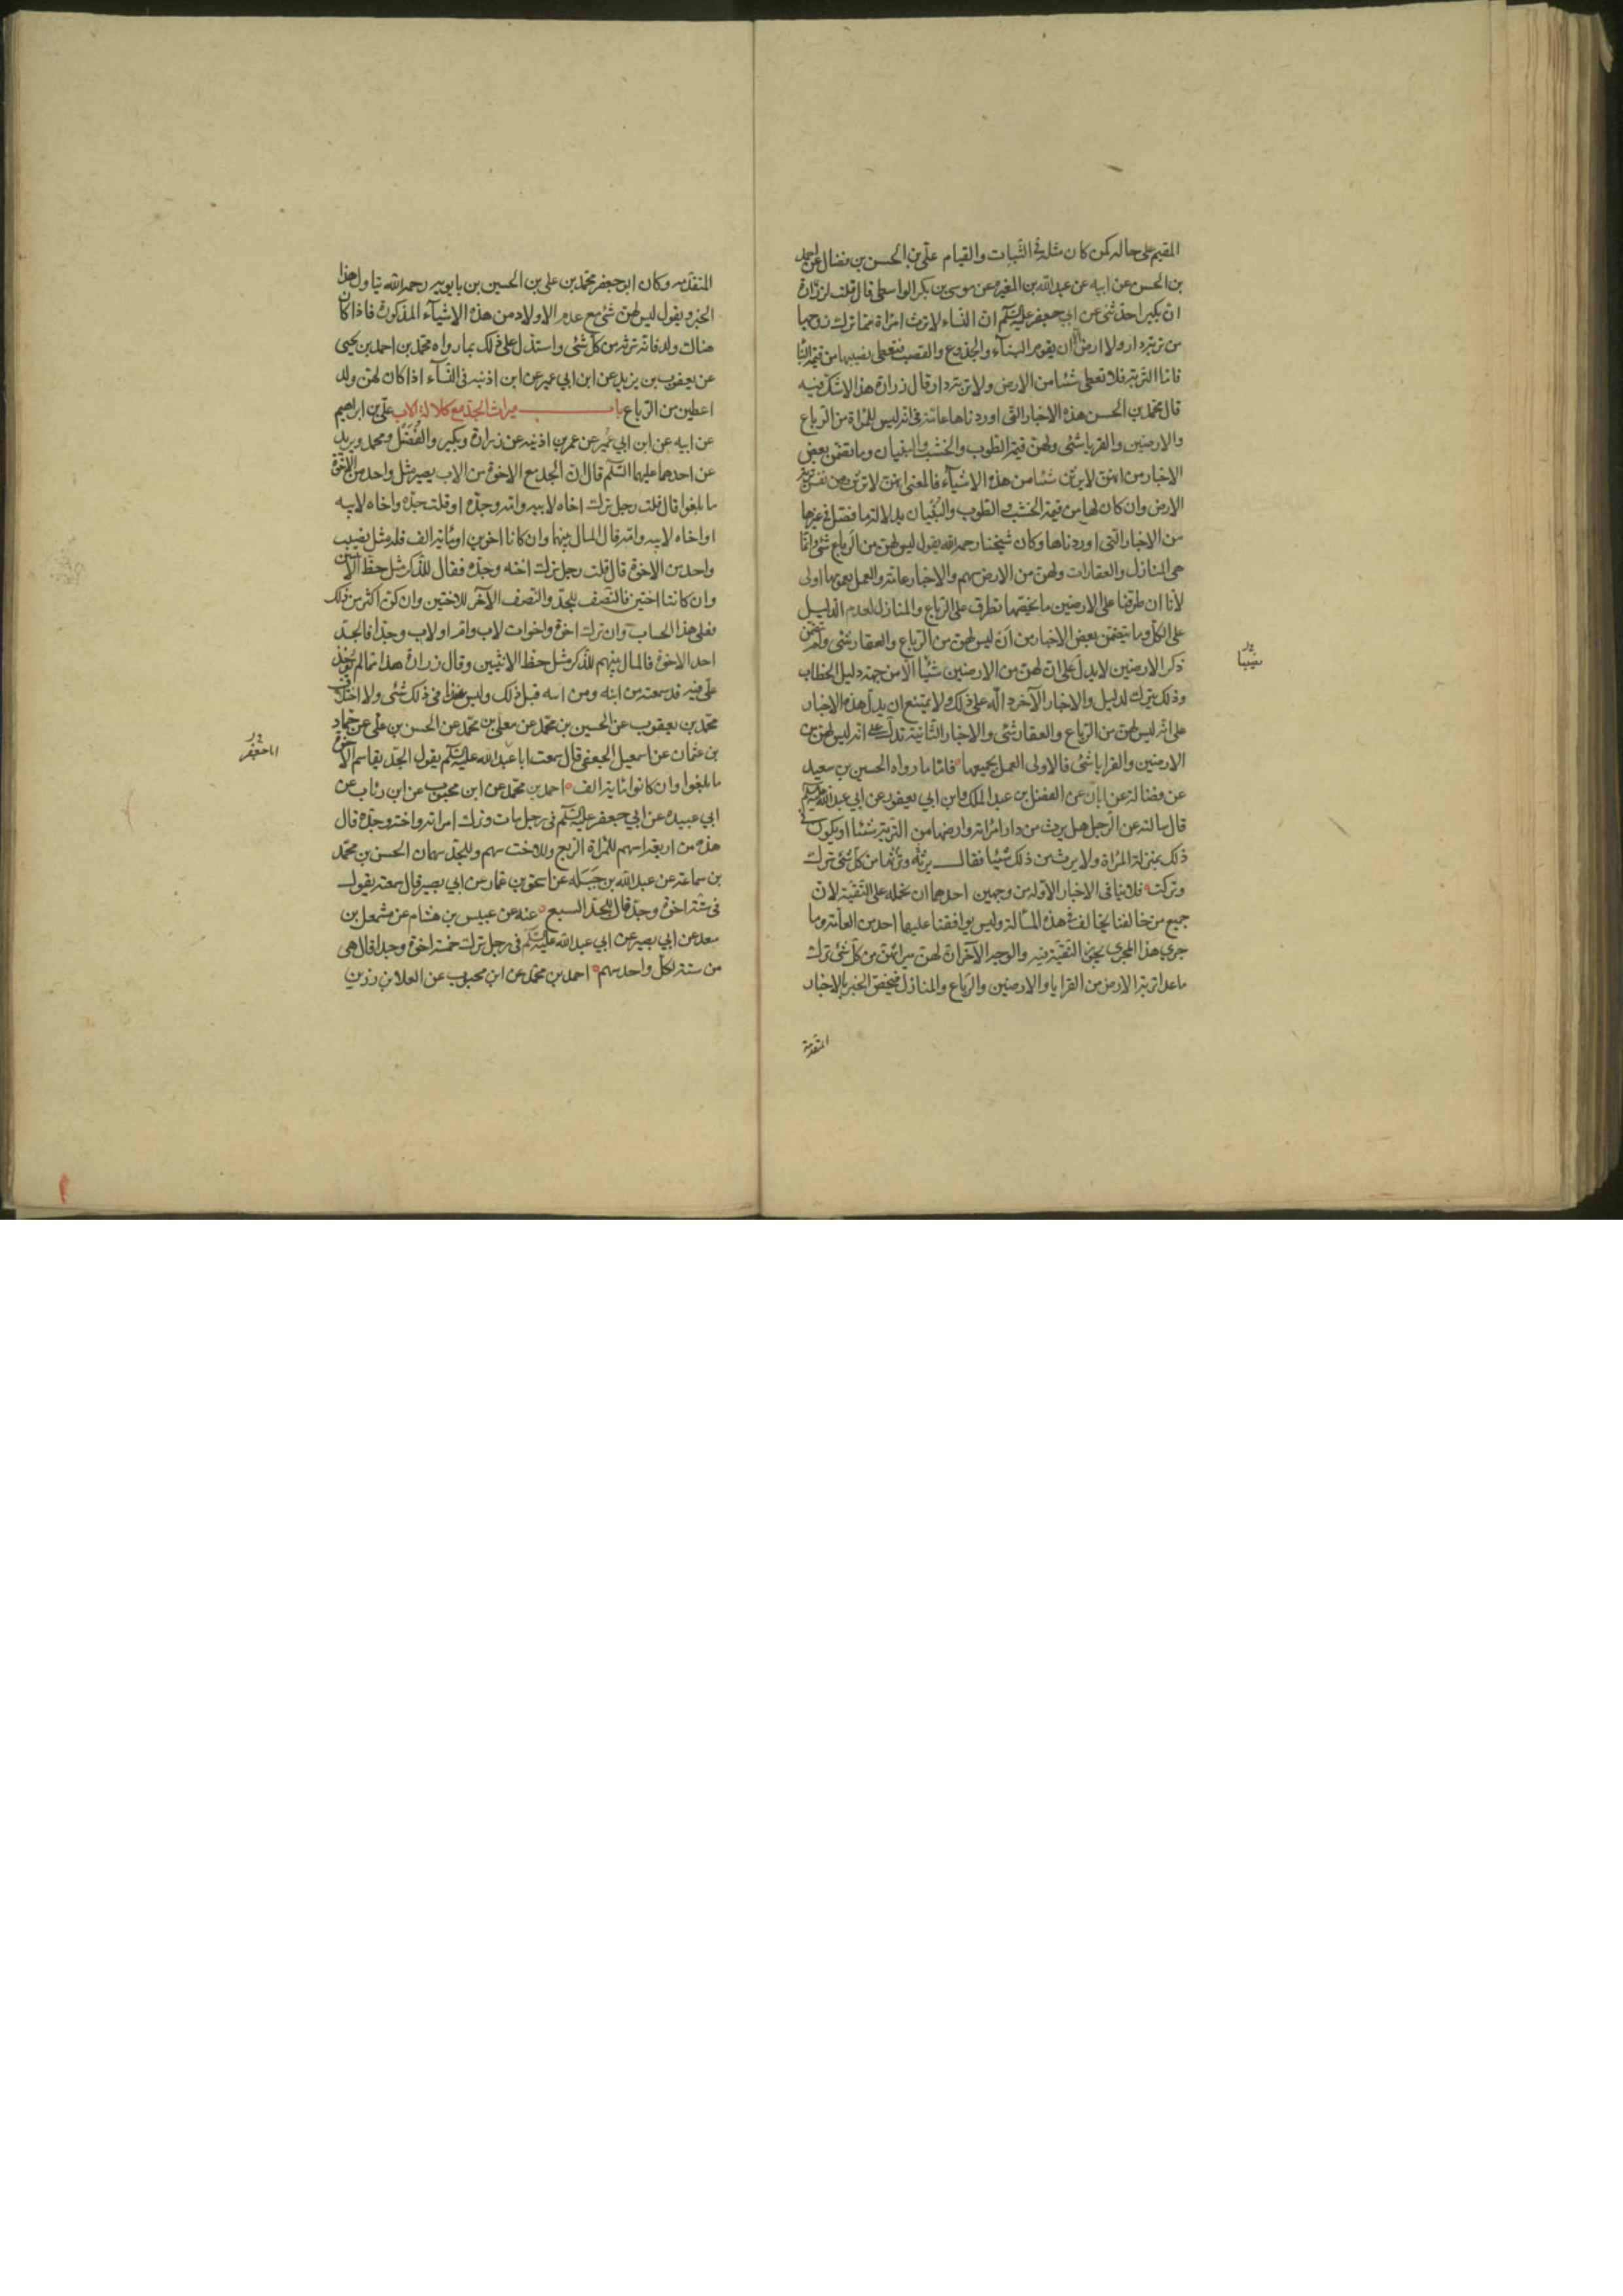 المقيم على حاله كمن كان مثله في الثبات والقيام علي بن الحسن بن فضال عن احمد
بن الحسن عن ابيه عن عبد الله بن المغيره عن موسى بن بكر الواسطي قال قلت لزرارة
ان بكيرا حدثني عن ابي جعفر عليه السلم ان النساء لا ترث امرأة مما ترك زوجها
من تربة دار ولا ارض الا ان يقوم البناء والجذوع والقصب فتعطى نصيبها من قيمة البناء
فاما التربة فلا تعطى شيئا من الارض ولا تربة دار قال زرارة هذا لا شك فيه
قال محمد بن الحسن هذه الاخبار التي اوردناها عامة في انه ليس للمرأة من الرباع
والارضين والقرايا شئ ولهن قيمة الطوب والخشب والبنيان وما تضمن بعض
الاخبار من انهن لا يرثن شيئا من هذه الاشياء فالمعنى انهن لا يرثن من نفس تربة
الارض وان كان لها من قيمة الخشب والطوب والبنيان بدلالة ما فصل في غيرها
من الاخبار التي اوردناها وكان شيخنا رحمه الله يقول ليس لهن من الرباع شئ وانما
هي المنازل والعقارات ولهن من الارض سهم والاخبار عامة والعمل بعمومها اولى
لأنا ان طرقنا على الارضين ما يخصها تطرق على الرباع والمنازل لعدم الدليل
على الكل وما يتضمن بعض الاخبار من ان ليس لهن من الرباع والعقار شئ ولم يتضمن
ذكر الارضين لا يدل على ان لهن من الارضين شيئا الا من جهة دليل الخطاب
وذلك يترك لدليل والاخبار الآخر دالة على ذلك ولا يمتنع ان يدل هذه الاخبار
على انه ليس لهن من الرباع والعقار شئ والاخبار الثانية تدل على انه ليس لهن من
الارضين والقرايا شئ فالاولى العمل بجميعها فاما ما رواه الحسين بن سعيد
عن فضالة عن ابان عن الفضل بن عبد الملك وابن ابي يعفور عن ابي عبد الله عليه السلم
قال سالته عن الرجل هل يرث من دار امرأته وارضها من التربة شيئا او يكون في
ذلك بمنزلة المرأة ولا يرث من ذلك شيئا فقال يرثه وترثها من كل شئ ترك
وتركت فلا ينافي الاخبار الاولة من وجهين احدهما ان نحمله على التقية لان
جميع من خالفنا يخالف في هذه المسالة وليس يوافقنا عليها احد من العامة وما
جرى هذا المجرى يجئ التقية فيه والوجه الآخر ان لهن ميراثهن من كل شئ ترك
ما عدا تربة الارض من القرايا والارضين والرباع والمنازل فيخص الخبر بالاخبار
المتقدمة
شيئا
المتقدمه وكان ابو جعفر محمد بن علي بن الحسين بن بابويه رحمه الله يتاول هذا
الخبر ويقول ليس لهن شئ مع عدم الاولاد من هذه الاشياء المذكورة فاذا كان
هناك ولد فانه ترثه من كل شئ واستدل على ذلك بما رواه محمد بن احمد بن يحيى
عن يعقوب بن يزيد عن ابن ابي عمير عن ابن اذنيه في النساء اذا كان لهن ولد
اعطين من الرباع باب ميراث الجد مع كلالة الاب علي بن ابراهيم
عن ابيه عن ابن ابي عمير عن عمر بن اذنيه عن زرارة وبكير والفضل ومحمد وبريد
عن احدهما عليهما السلم قال ان الجد مع الاخوة من الاب يصير مثل واحد من الاخوة
ما بلغوا قال قلت رجل ترك اخاه لابيه وامه وجده او قلت جده واخاه لابيه
او اخاه لابيه وامه قال المال بينهما وان كانا اخوين او مائة الف فله مثل نصيب
واحد من الاخوة قال قلت رجل ترك اخته وجده فقال للذكر مثل حظ الانثيين
وان كانتا اختين فالنصف للجد والنصف الآخر للاختين وان كن اكثر من ذلك
فعلى هذا الحساب وان ترك اخوة واخوات لاب وام او لاب وجدا فالجد
احد الاخوة فالمال بينهم للذكر مثل حظ الانثيين وقال زرارة هذا مما لم يؤخذ
علي فيه قد سمعته من ابنه ومن ابيه قبل ذلك وليس عندنا في ذلك شئ ولا اختلاف
محمد بن يعقوب عن الحسين بن محمد عن معلى بن محمد عن الحسن بن علي عن حماد
بن عثمان عن اسمعيل الجعفي قال سمعت ابا عبد الله عليه السلم يقول الجد يقاسم الاخوة
ما بلغوا وان كانوا مائة الف احمد بن محمد عن ابن محبوب عن ابن رئاب عن
ابي عبيده عن ابي جعفر عليه السلم في رجل مات وترك امراته واخته وجده قال
هذه من اربعة اسهم للمرأة الربع وللاخت سهم وللجد سهمان الحسن بن محمد
بن سماعة عن عبد الله بن جبله عن اسحق بن عمار عن ابي بصير قال سمعته يقول
في ستة اخوة وجد قال للجد السبع عنه عن عبيس بن هشام عن مشمعل بن
سعد عن ابي بصير عن ابي عبد الله عليه السلم في رجل ترك خمسة اخوة وجدا قال هي
من ستة لكل واحد سهم احمد بن محمد عن ابن محبوب عن العلا بن رزين
ابا جعفر